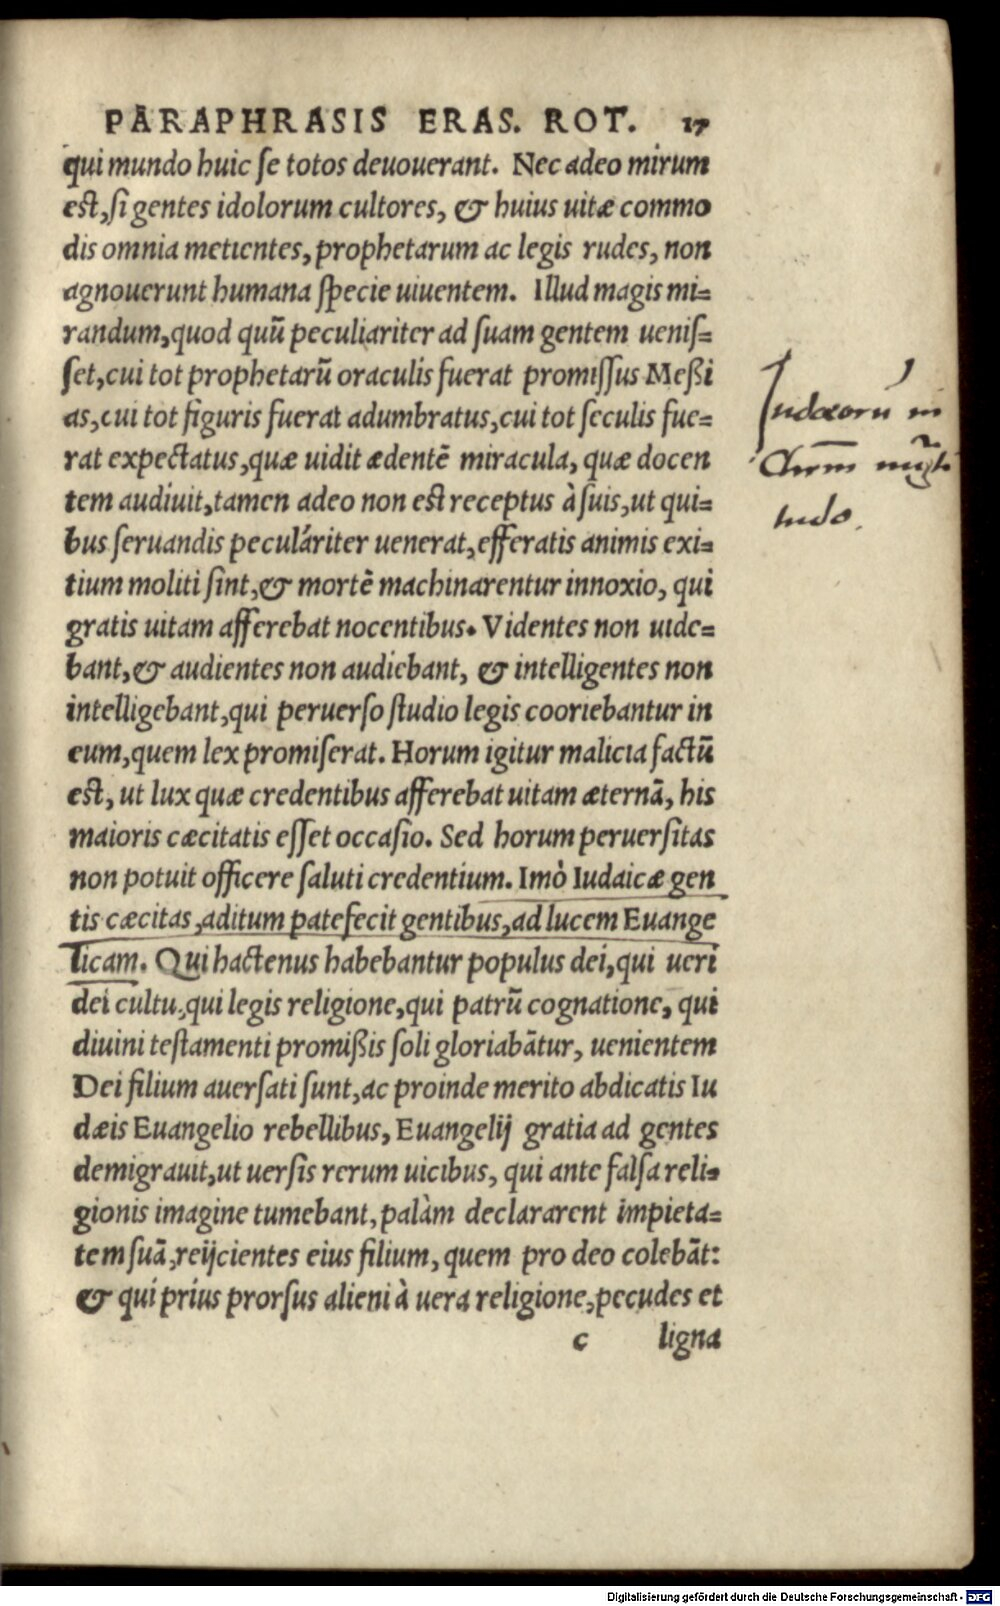 PARAPHRASIS ERAS. ROT. 17
qui mundo huic ſe totos deuouerant. Nec adeo mirum
eſt, ſi gentes idolorum cultores, & huius uitæ commo
dis omnia metientes, prophetarum ac legis rudes, non
agnouerunt humana ſpecie uiuentem. Illud magis mi=
randum, quod quū peculiariter ad ſuam gentem ueniſ=
ſet, cui tot prophetarū oraculis fuerat promiſſus Meßi
as, cui tot figuris fuerat adumbratus, cui tot ſeculis fue=
rat expectatus, quæ uidit ædentē miracula, quæ docen
tem audiuit, tamen adeo non eſt receptus à ſuis, ut qui=
bus ſeruandis peculáriter uenerat, efferatis animis exi=
tium moliti ſint, & mortē machinarentur innoxio, qui
gratis uitam afferebat nocentibus. Videntes non uide=
bant, & audientes non audiebant, & intelligentes non
intelligebant, qui peruerſo ſtudio legis cooriebantur in
eum, quem lex promiſerat. Horum igitur malicia factū
eſt, ut lux quæ credentibus afferebat uitam æternā, his
maioris cæcitatis eſſet occaſio. Sed horum peruerſitas
non potuit officere ſaluti credentium. Imò Iudaicæ gen
tis cæcitas, aditum patefecit gentibus, ad lucem Euange
licam. Qui hactenus habebantur populus dei, qui ueri
dei cultu, qui legis religione, qui patrū cognatione, qui
diuini teſtamenti promißis ſoli gloriabātur, uenientem
Dei filium auerſati ſunt, ac proinde merito abdicatis Iu
dæis Euangelio rebellibus, Euangelij gratia ad gentes
demigrauit, ut uerſis rerum uicibus, qui ante falſa reli=
gionis imagine tumebant, palàm declararent impieta=
tem ſuā, reijcientes eius filium, quem pro deo colebāt:
& qui prius prorſus alieni à uera religione, pecudes et
c ligna
Judæorū in
tudo.
Digitalisierung gefördert durch die Deutsche Forschungsgemeinschaft - DFG